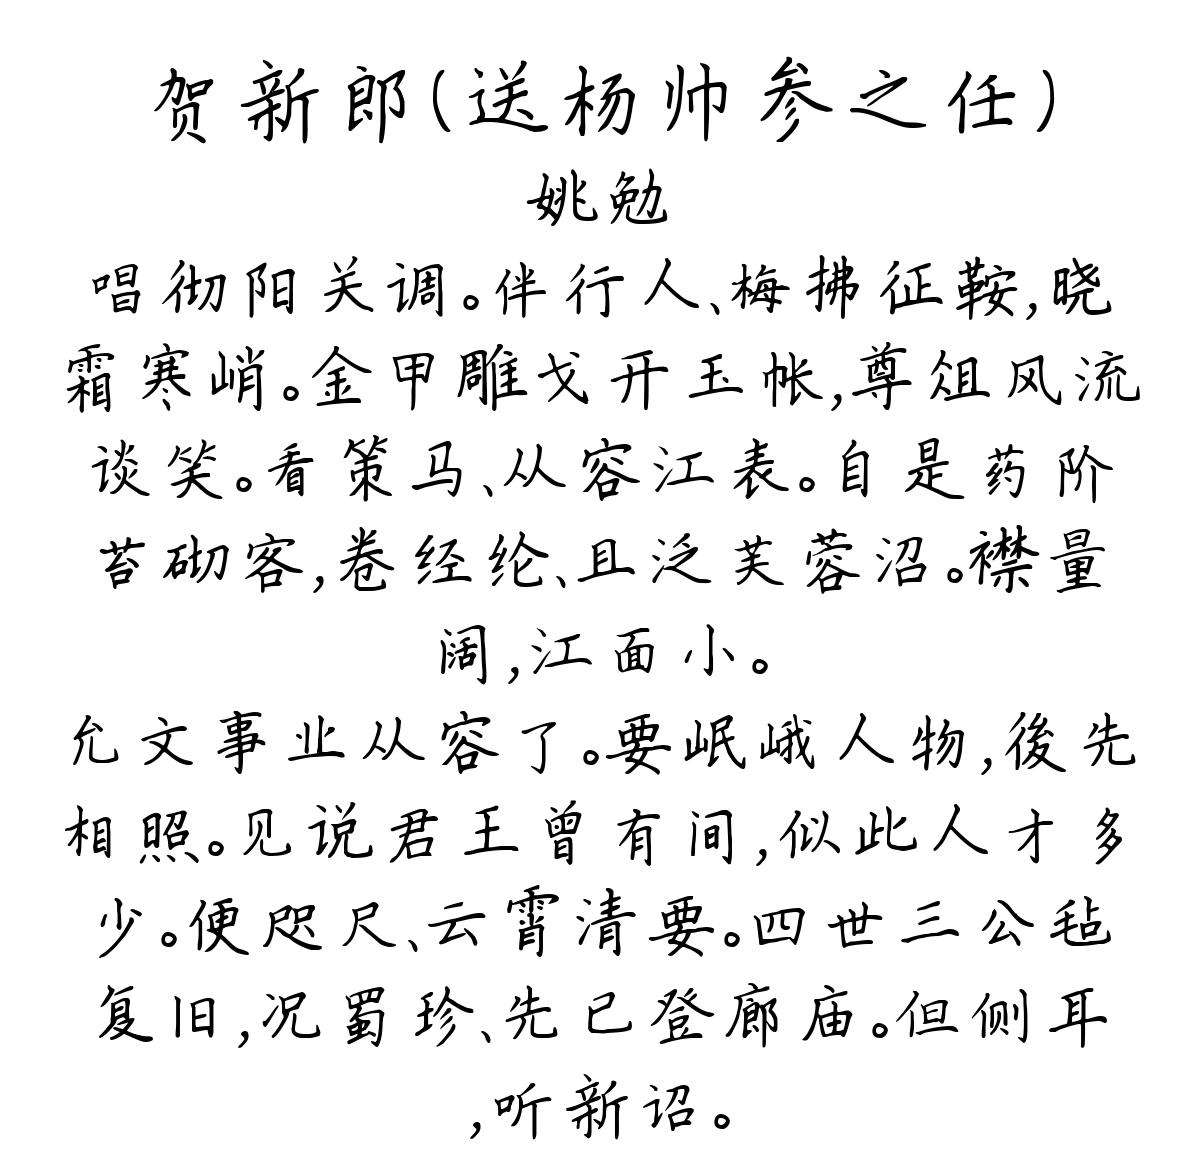 贺新郎(送杨帅参之任)
姚勉
唱彻阳关调。伴行人、梅拂征鞍,晓
霜寒峭。金甲雕戈开玉帐,尊俎风流
谈笑。看策马、从容江表。自是药阶
苔砌客,卷经纶、且泛芙蓉沼。襟量
阔,江面小。
允文事业从容了。要岷峨人物,後先
相照。见说君王曾有间,似此人才多
少。便咫尺、云霄清要。四世三公毡
复旧,况蜀珍、先已登廊庙。但侧耳
,听新诏。